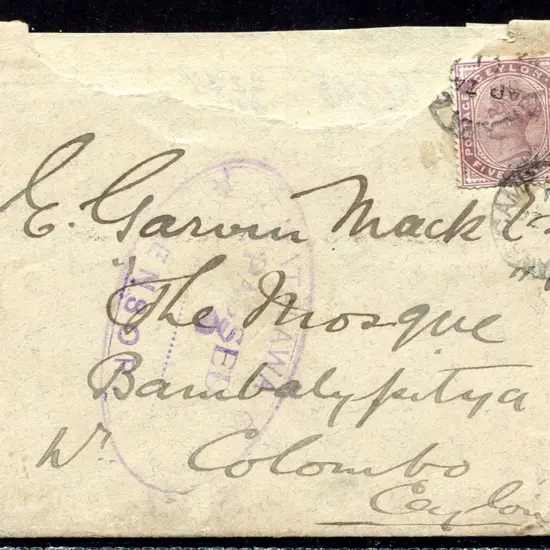 POSTAGE
CEYLON
FIVE
E. Garvin Mack
"The Mosque
Bambalapitya
Nr. Colombo
Ceylon
PASSED
CENSOR